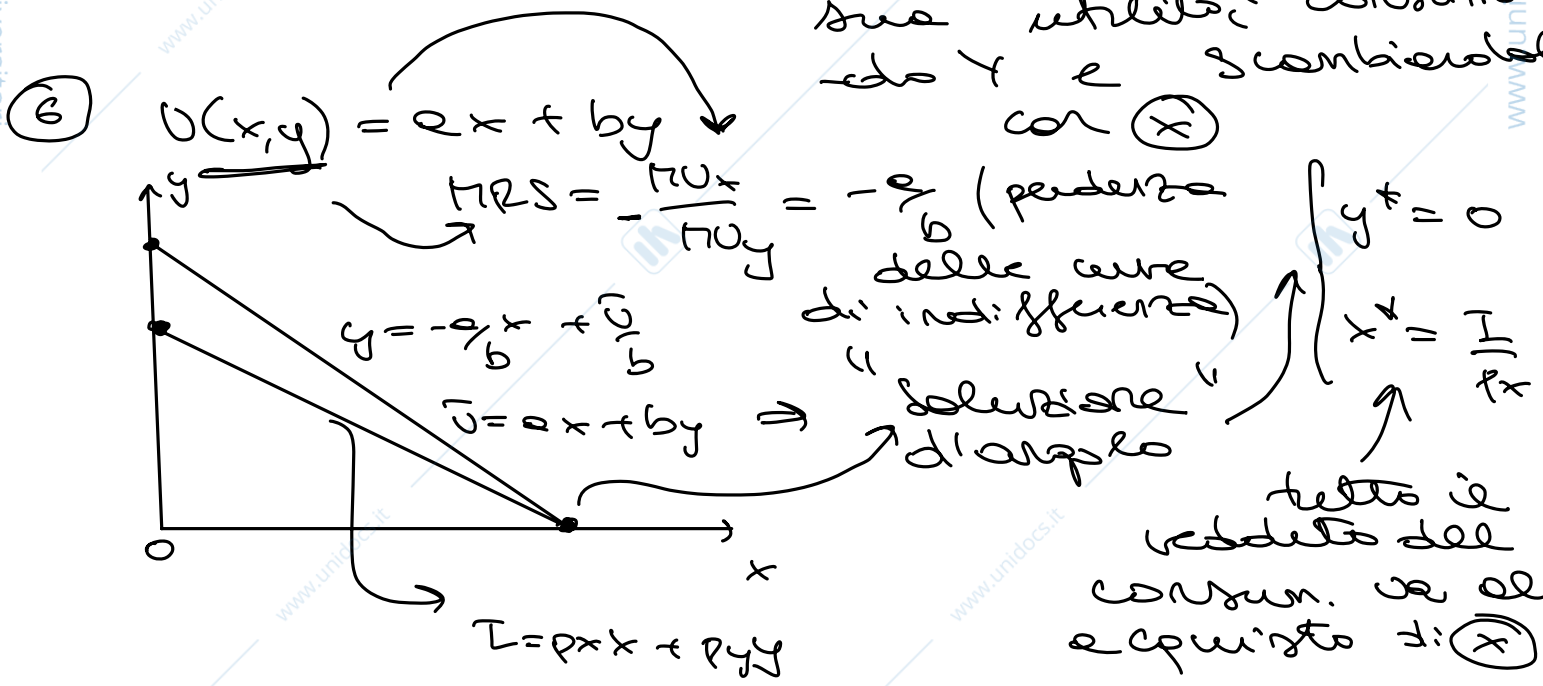 sua utilità,
-do Y e scambiandol
con (x)
(6) U(x,y) = ax + by
MRS = - MUx/MUy = -a/b (pendenza
delle curve
di indifferenza)
y
y = -a/b x + Ū/b
Ū = ax + by ⇒ "soluzione"
d'angolo
y* = 0
x* = I/px
tutto il
reddito del
consum. va al
acquisto di (x)
0
x
I = pxx + pyy
www.unidocs.it
www.unidocs.it